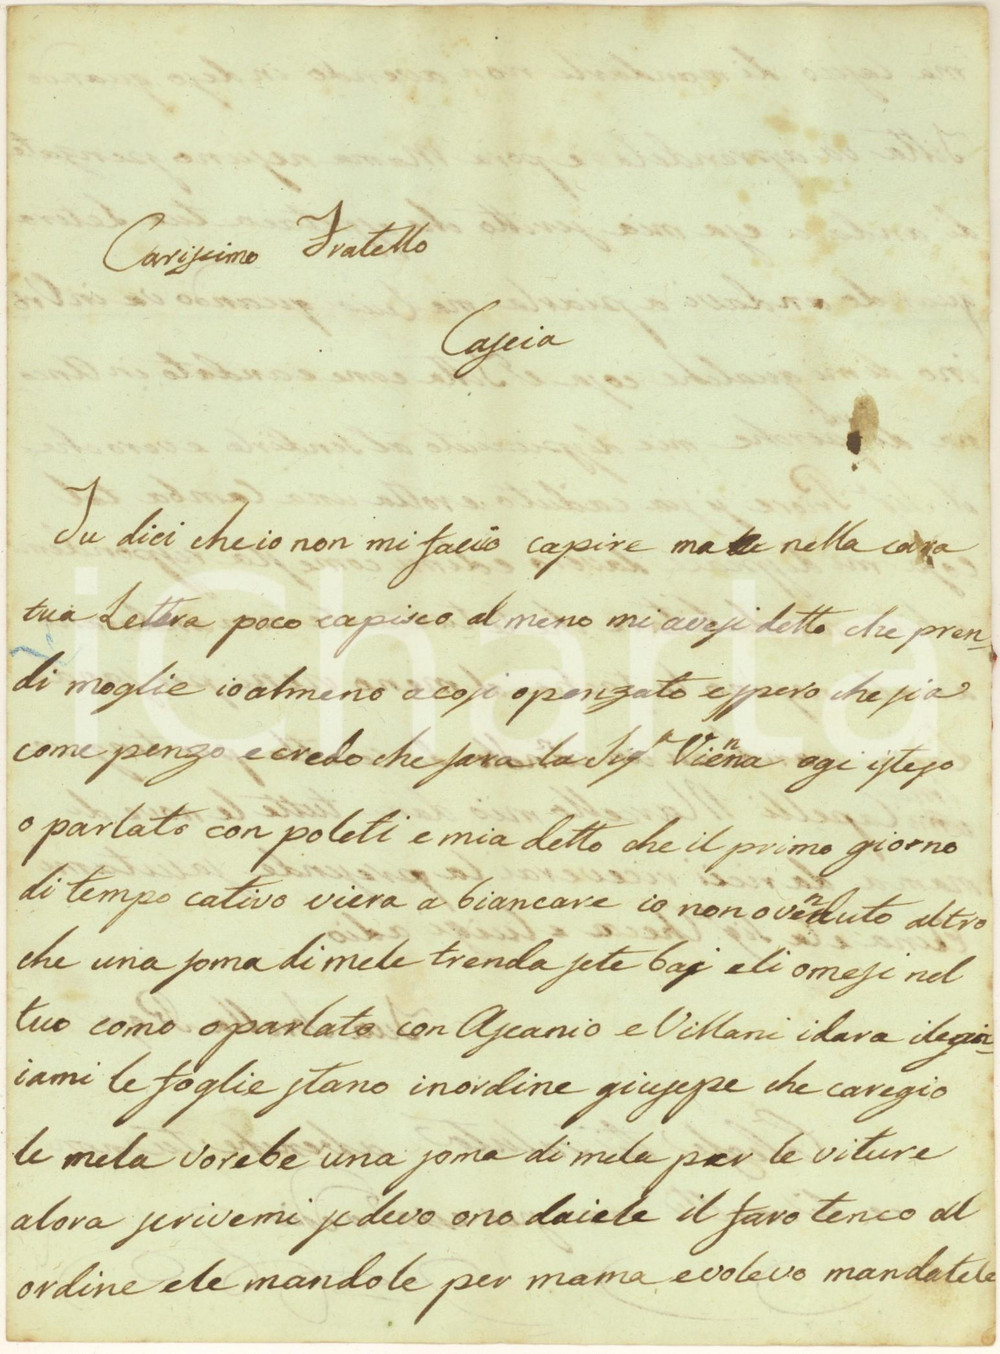 Carissimo Fratello
Cascia
Tu dici che io non mi faccio capire ma nella cara
tua Lettera poco capisco al meno mi avesi detto che pren-
di moglie io almeno a cosi o penzato e spero che sia
come penzo e credo che sara la Sigª Vienna ogi isteso
o parlato con poleti e mia detto che il primo giorno
di tempo cativo viera a biancare io non o venduto altro
che una soma di mele trenda sete baj eli omesi nel
tuo como o parlato con Ascanio e Villani idara
iami le foglie stano inordine giusepe che caregio
le mela vorebe una soma di mela per le viture
alora scrivemi se devo ono daiele il farro tenco al
ordine ele mandole per mama evolevo mandatele
iCharta